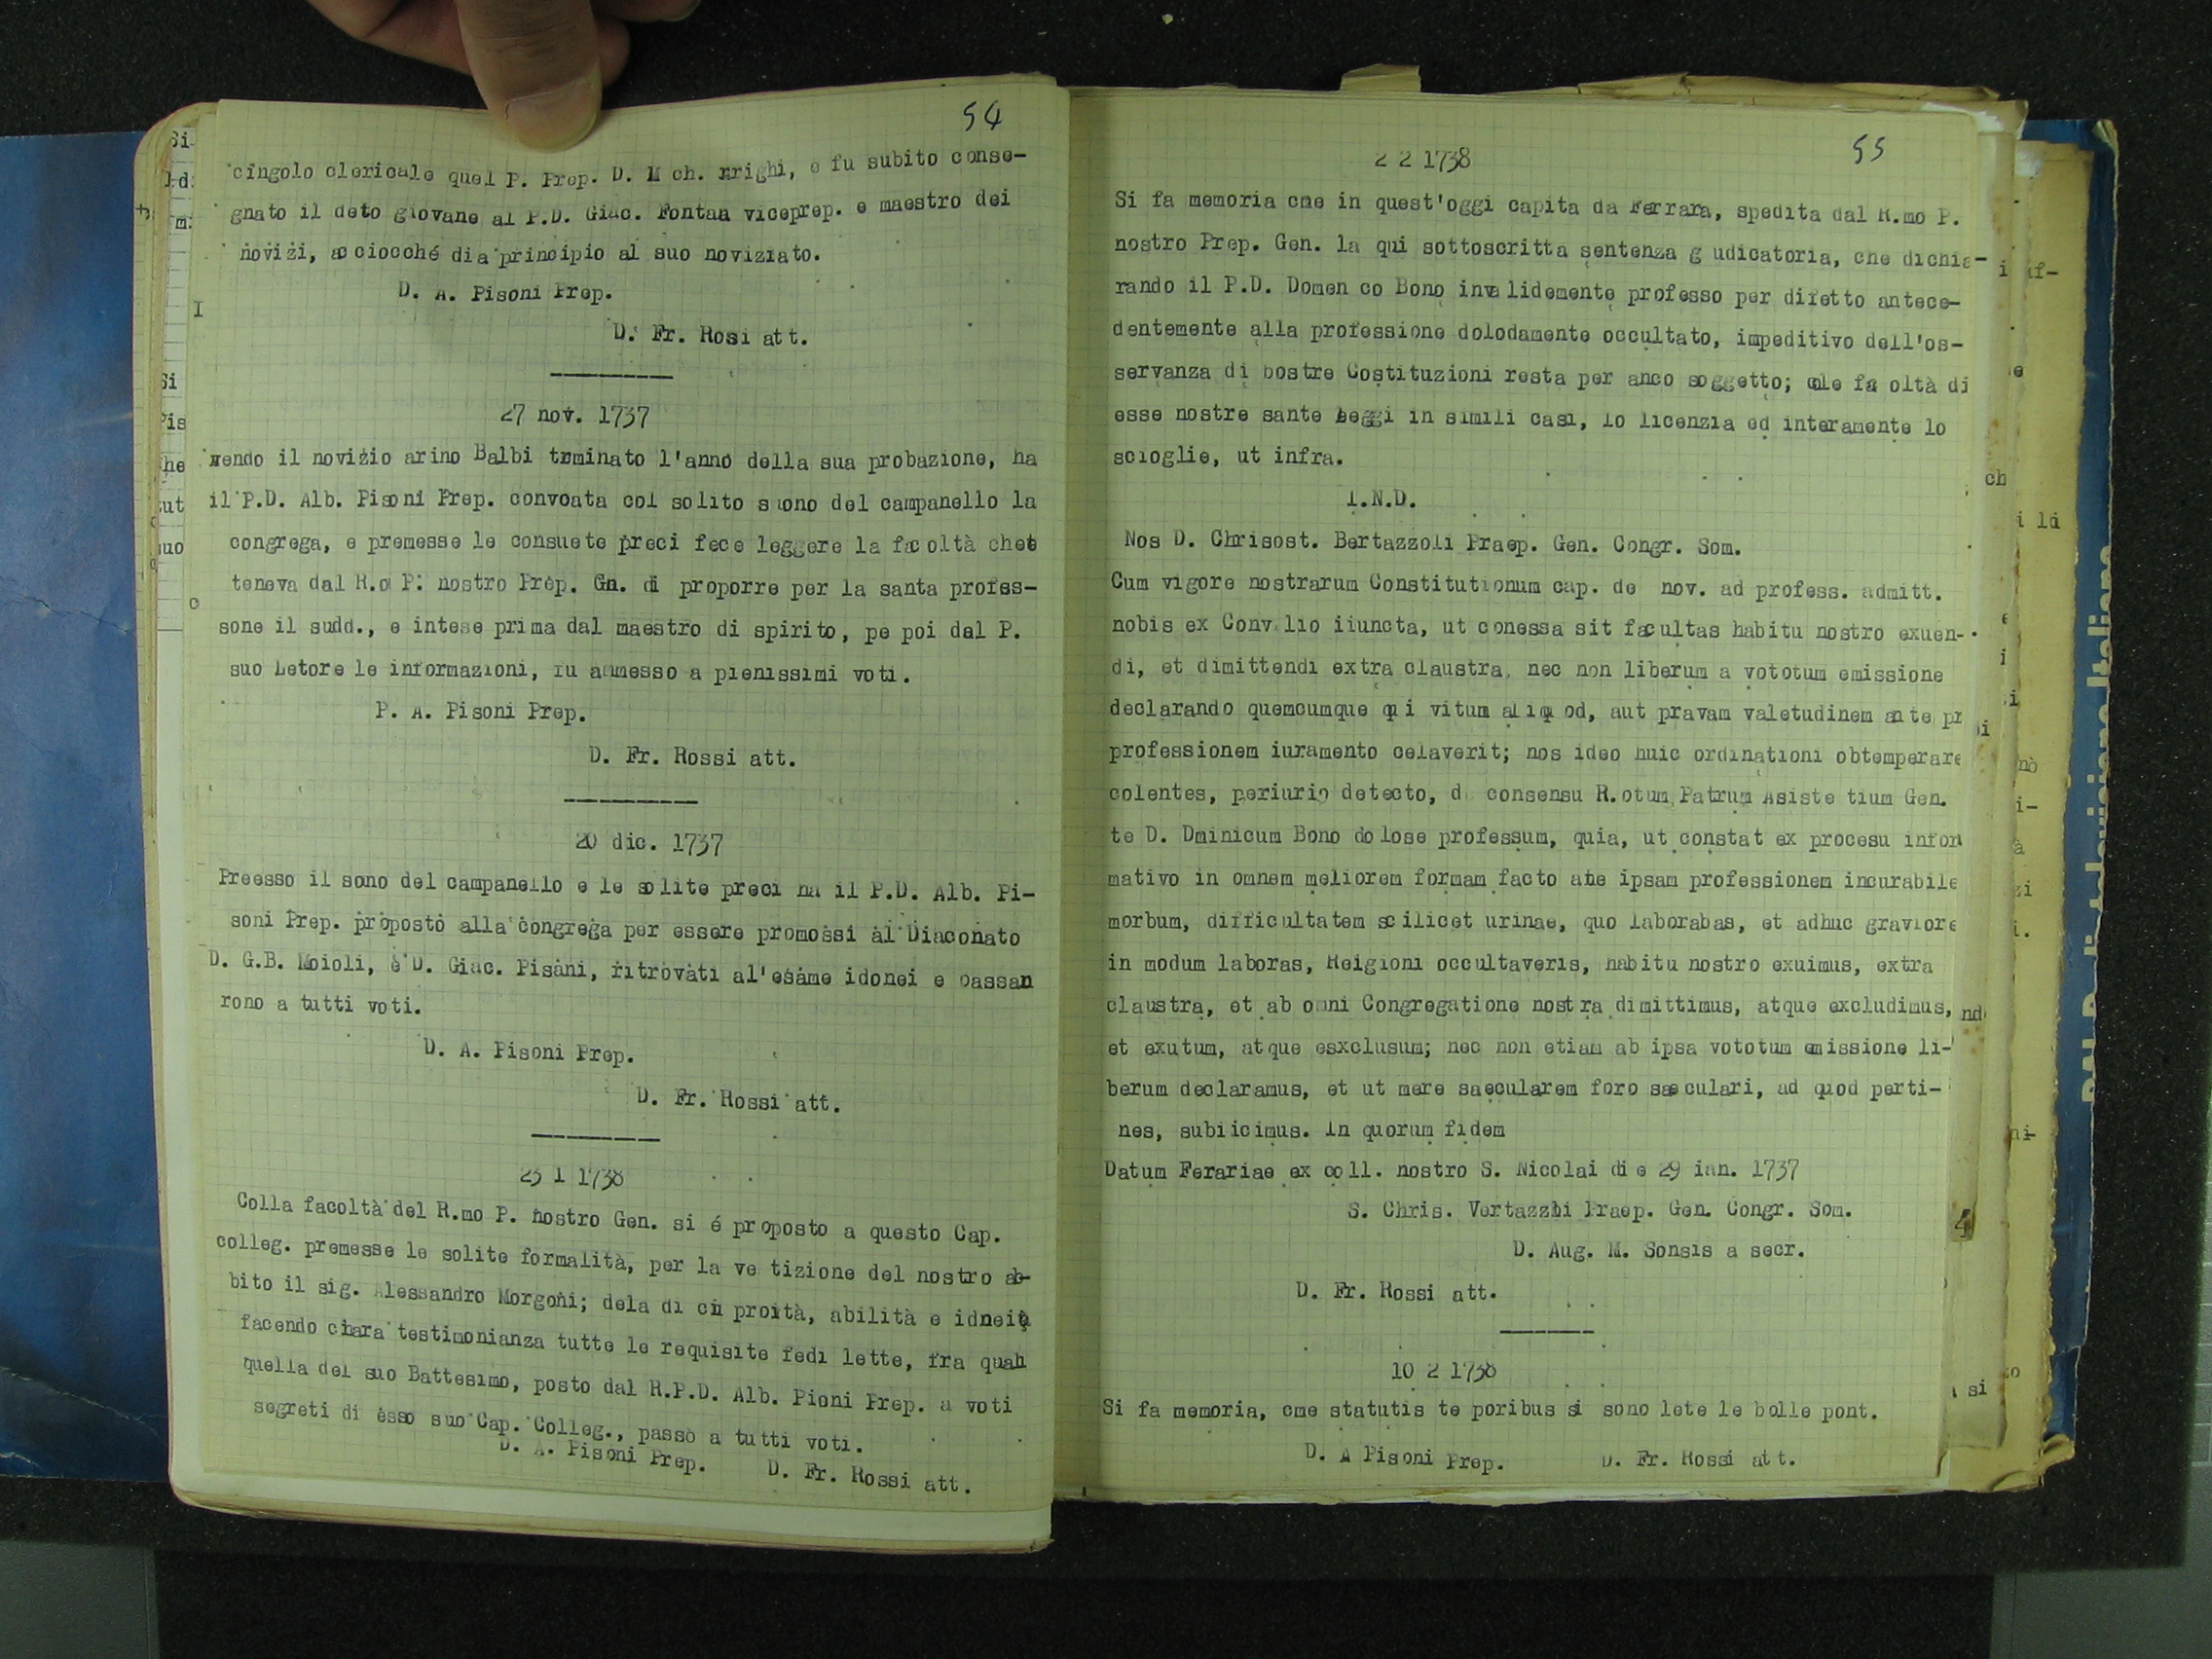 54
cingolo clericale quel P. Prep. D. M ch. rrighi, e fu subito conse-
gnato il deto giovane al P.D. Giac. Fontaa viceprep. e maestro dei
novizi, acciocché dia principio al suo noviziato.
D. A. Pisoni Prep.
D. Fr. Rosi att.
27 nov. 1737
vendo il novizio arino Balbi trminato l'anno della sua probazione, ha
il P.D. Alb. Pisoni Prep. convoata col solito suono del campanello la
congrega, e premesse le consuete preci fece leggere la facoltà che
teneva dal R.o P. nostro Prep. Gn. di proporre per la santa profss-
sone il sudd., e intese prima dal maestro di spirito, pe poi dal P.
suo Letore le informazioni, fu ammesso a pienissimi voti.
P. A. Pisoni Prep.
D. Fr. Rossi att.
20 dic. 1737
Preesso il sono del campanello e le solite preci ha il P.D. Alb. Pi-
soni Prep. proposto alla congrega per essere promossi al Diaconato
D. G.B. Moioli, e D. Giac. Pisani, ritrovati al'esame idonei e passan
rono a tutti voti.
D. A. Pisoni Prep.
D. Fr. Rossi att.
23 1 1738
Colla facoltà del R.mo P. nostro Gen. si é proposto a questo Cap.
colleg. premesse le solite formalità, per la ve tizione del nostro ab-
bito il sig. Alessandro Morgoni; dela di cui proità, abilità e idneià
facendo chara testimonianza tutte le requisite fedi lette, fra quali
quella del suo Battesimo, posto dal R.P.D. Alb. Pioni Prep. a voti
segreti di esso suo Cap. Colleg., passò a tutti voti.
D. A. Pisoni Prep.
D. Fr. Rossi att.
55
2 2 1738
Si fa memoria che in quest'oggi capita da Ferrara, spedita dal R.mo P.
nostro Prep. Gen. la qui sottoscritta sentenza g udicatoria, che dichia-
rando il P.D. Domen co Bono invalidemente professo per difetto antece-
dentemente alla professione dolodamente occultato, impeditivo dell'os-
servanza di bostre Costituzioni resta per anco soggetto; ole fa oltà di
esse nostre sante Leggi in simili casi, lo licenzia ed interamente lo
scioglie, ut infra.
I.N.D.
Nos D. Chrisost. Bertazzoli Praep. Gen. Congr. Som.
Cum vigore nostrarum Constitutionum cap. de nov. ad profess. admitt.
nobis ex Conv lio iiuncta, ut conessa sit facultas habitu nostro exuen-
di, et dimittendi extra claustra, nec non liberum a vototum emissione
declarando quemcumque qui vitum aliquod, aut pravam valetudinem ante pr
professionem iuramento celaverit; nos ideo huic ordinationi obtemperare
colentes, periurio detecto, d consensu R.otum Patrum Asiste tium Gen.
te D. Dminicum Bono dolose professum, quia, ut constat ex procesu infor
mativo in omnem meliorem formam facto ane ipsam professionem incurabile
morbum, difficultatem scilicet urinae, quo laborabas, et adhuc graviore
in modum laboras, Reigioni occultaveris, habitu nostro exuimus, extra
claustra, et ab omni Congregatione nostra dimittimus, atque excludimus,
et exutum, atque esxclusum; nec non etiam ab ipsa vototum emissione li-
berum declaramus, et ut mere saecularem foro saeculari, ad quod perti-
nes, subiicimus. In quorum fidem
Datum Ferariae ex coll. nostro S. Nicolai die 29 ian. 1737
S. Chris. Vertazzbi Praep. Gen. Congr. Som.
D. Aug. M. Sonsis a secr.
D. Fr. Rossi att.
10 2 1738
Si fa memoria, cme statutis te poribus si sono lete le bolle pont.
D. A Pisoni Prep.
D. Fr. Rossi att.